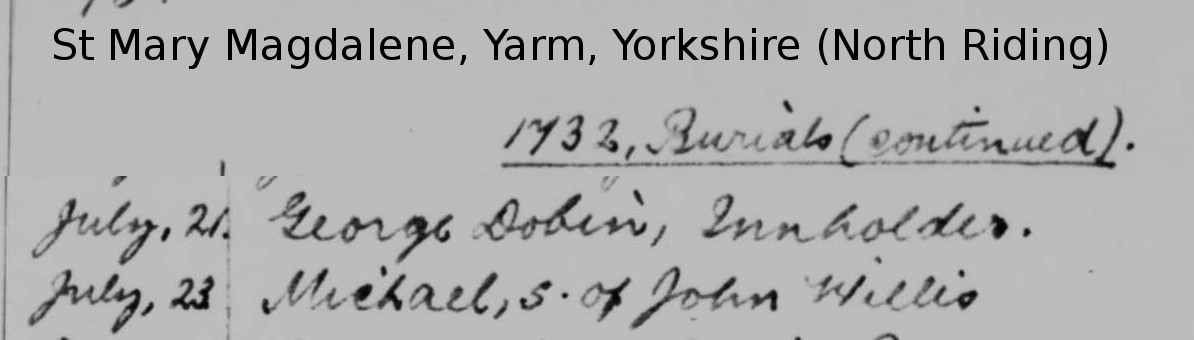 St Mary Magdalene, Yarm, Yorkshire (North Riding)
1732, Burials (continued).
July, 21. George Dobin, Innholder.
July, 23 Michael, s. of John Willis